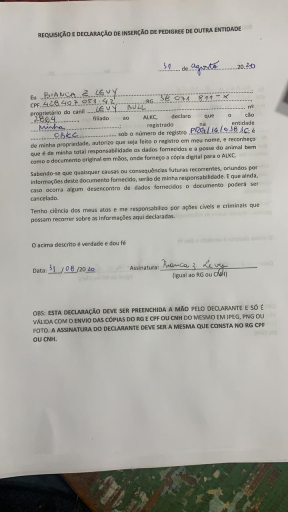 REQUISIÇÃO E DECLARAÇÃO DE INSERÇÃO DE PEDIGREE DE OUTRA ENTIDADE
31 de agosto 2020
Eu BIANCA Z LEVY
CPF. RG
proprietário do canil LEVY BULL nº.
filiado ao ALKC, declaro que o cão
Minha registrado na entidade
CBKC sob o número de registro é
de minha propriedade, autorizo que seja feito o registro em meu nome, e reconheço
que é de minha total responsabilidade os dados fornecidos e a posse do animal bem
como o documento original em mãos, onde forneço a cópia digital para o ALKC.
Sabendo-se que quaisquer causas ou consequências futuras recorrentes, oriundos por
informações deste documento fornecido, serão de minha responsabilidade. E que ainda,
caso ocorra algum desencontro de dados fornecidos o documento poderá ser
cancelado.
Tenho ciência dos meus atos e me responsabilizo por ações cíveis e criminais que
possam recorrer sobre as informações aqui declaradas.
O acima descrito é verdade e dou fé
Data: 31/08/2020 Assinatura: Bianca Z Levy
(igual ao RG ou CNH)
OBS: ESTA DECLARAÇÃO DEVE SER PREENCHIDA A MÃO PELO DECLARANTE E SÓ É
VÁLIDA COM O ENVIO DAS CÓPIAS DO RG E CPF OU CNH DO MESMO EM JPEG, PNG OU
FOTO. A ASSINATURA DO DECLARANTE DEVE SER A MESMA QUE CONSTA NO RG CPF
OU CNH.